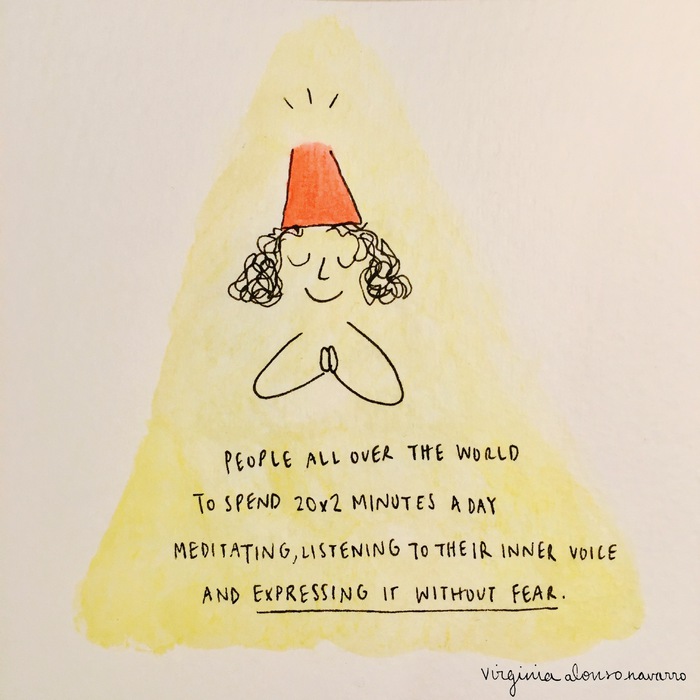 PEOPLE ALL OVER THE WORLD
TO SPEND 20x2 MINUTES A DAY
MEDITATING, LISTENING TO THEIR INNER VOICE
AND EXPRESSING IT WITHOUT FEAR.
virginia alonso navarro